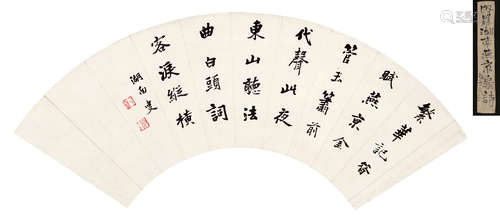 繁華記曾
賦燕京金
管玉簫前
代聲此夜
東山聽法
曲白頭詞
客淚縱橫
湖南叟